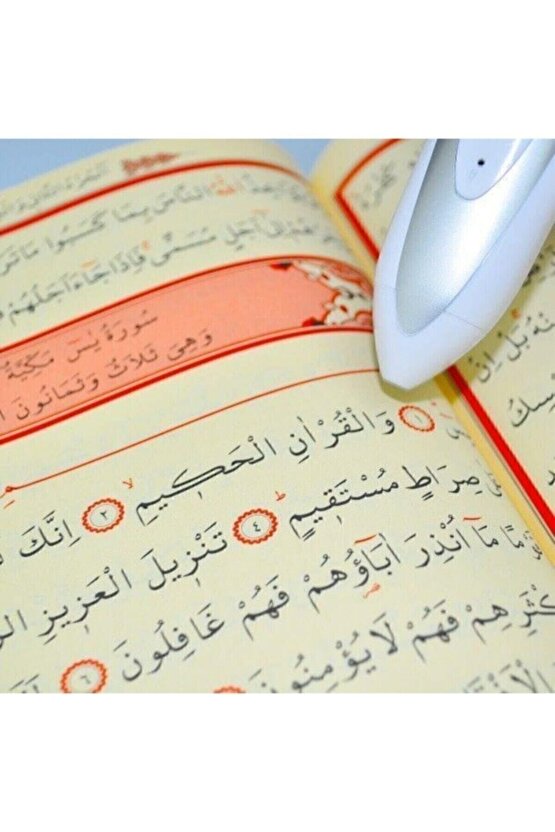 الله النَّاسَ بِمَا كَسَبُوا مَا تَرَكَ
اِلٰٓى اَجَلٍ مُسَمًّى فَاِذَا جَٓاءَ اَجَلُهُمْ
سُورَةُ يٰسٓ مَكِّيَّةٌ
وَهِيَ ثَلَاثٌ وَثَمَانُونَ
١ وَالْقُرْاٰنِ الْحَكٖيمِ ٢ اِنَّكَ
صِرَاطٍ مُسْتَقٖيمٍ ٤ تَنْزٖيلَ الْعَزٖيزِ
مَٓا اُنْذِرَ اٰبَٓاؤُهُمْ فَهُمْ غَافِلُونَ ٦
فَهُمْ لَا يُؤْمِنُونَ
بَلْ اِنْ